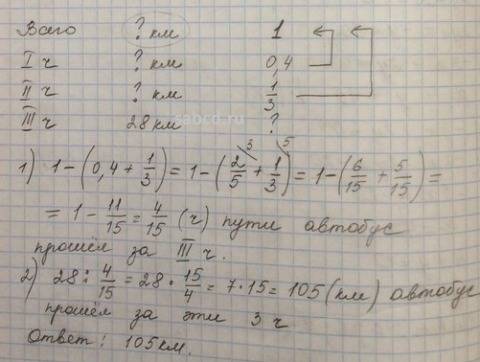 Всего ? км 1
I ч ? км 0,4
II ч ? км 1/3
sabcd.ru
III ч 28 км ?
1) 1-(0,4+1/3)=1-(2/5 3 + 1/3 5)=1-(6/15+5/15)=
=1-11/15=4/15 (ч) пути автобус
прошёл за III ч.
2) 28:4/15=28·15/4=7·15=105 (км) автобус
прошёл за эти 3 ч
Ответ: 105км.